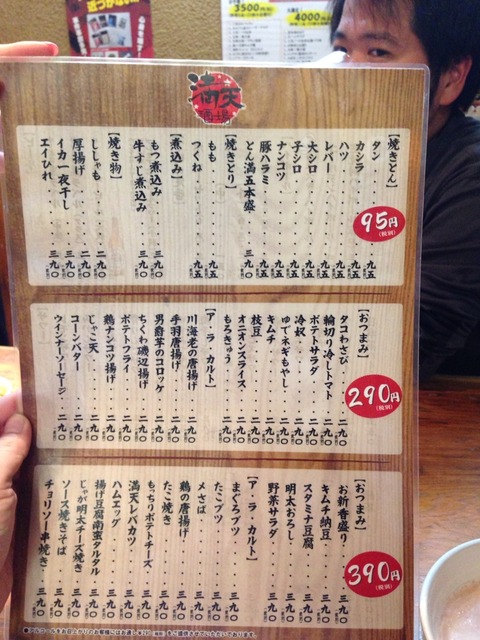 3500円
4000円
満天
酒場
95円
(税別)
【焼きとん】
タン・・・九五
カシラ・・・九五
ハツ・・・九五
レバー・・・九五
大シロ・・・九五
子シロ・・・九五
ナンコツ・・・九五
豚ハラミ・・・九五
とん満五本盛・・・三九〇
【焼きとり】
もも・・・九五
つくね・・・九五
【煮込み】
もつ煮込み・・・三九〇
牛すじ煮込み・・・三九〇
【焼き物】
ししゃも・・・二九〇
厚揚げ・・・二九〇
イカ一夜干し・・・三九〇
エイひれ・・・三九〇
290円
(税別)
【おつまみ】
タコわさび・・・二九〇
輪切り冷しトマト・・・二九〇
ポテトサラダ・・・二九〇
冷奴・・・二九〇
ゆでネギもやし・・・二九〇
キムチ・・・二九〇
枝豆・・・二九〇
オニオンスライス・・・二九〇
もろきゅう・・・二九〇
【ア・ラ・カルト】
川海老の唐揚げ・・・二九〇
手羽唐揚げ・・・二九〇
男爵芋のコロッケ・・・二九〇
ちくわ磯辺揚げ・・・二九〇
ポテトフライ・・・二九〇
鶏ナンコツ揚げ・・・二九〇
じゃこ天・・・二九〇
コーンバター・・・二九〇
ウインナーソーセージ・・・二九〇
390円
(税別)
【おつまみ】
お新香盛り・・・三九〇
キムチ納豆・・・三九〇
スタミナ豆腐・・・三九〇
明太おろし・・・三九〇
野菜サラダ・・・三九〇
【ア・ラ・カルト】
まぐろブツ・・・三九〇
たこブツ・・・三九〇
メさば・・・三九〇
鶏の唐揚げ・・・三九〇
たこ焼き・・・三九〇
もっちりポテトチーズ・・・三九〇
満天レバカツ・・・三九〇
ハムエッグ・・・三九〇
揚げ豆腐南蛮タルタル・・・三九〇
じゃが明太チーズ焼き・・・三九〇
ソース焼きそば・・・三九〇
チョリソー串焼き・・・三九〇